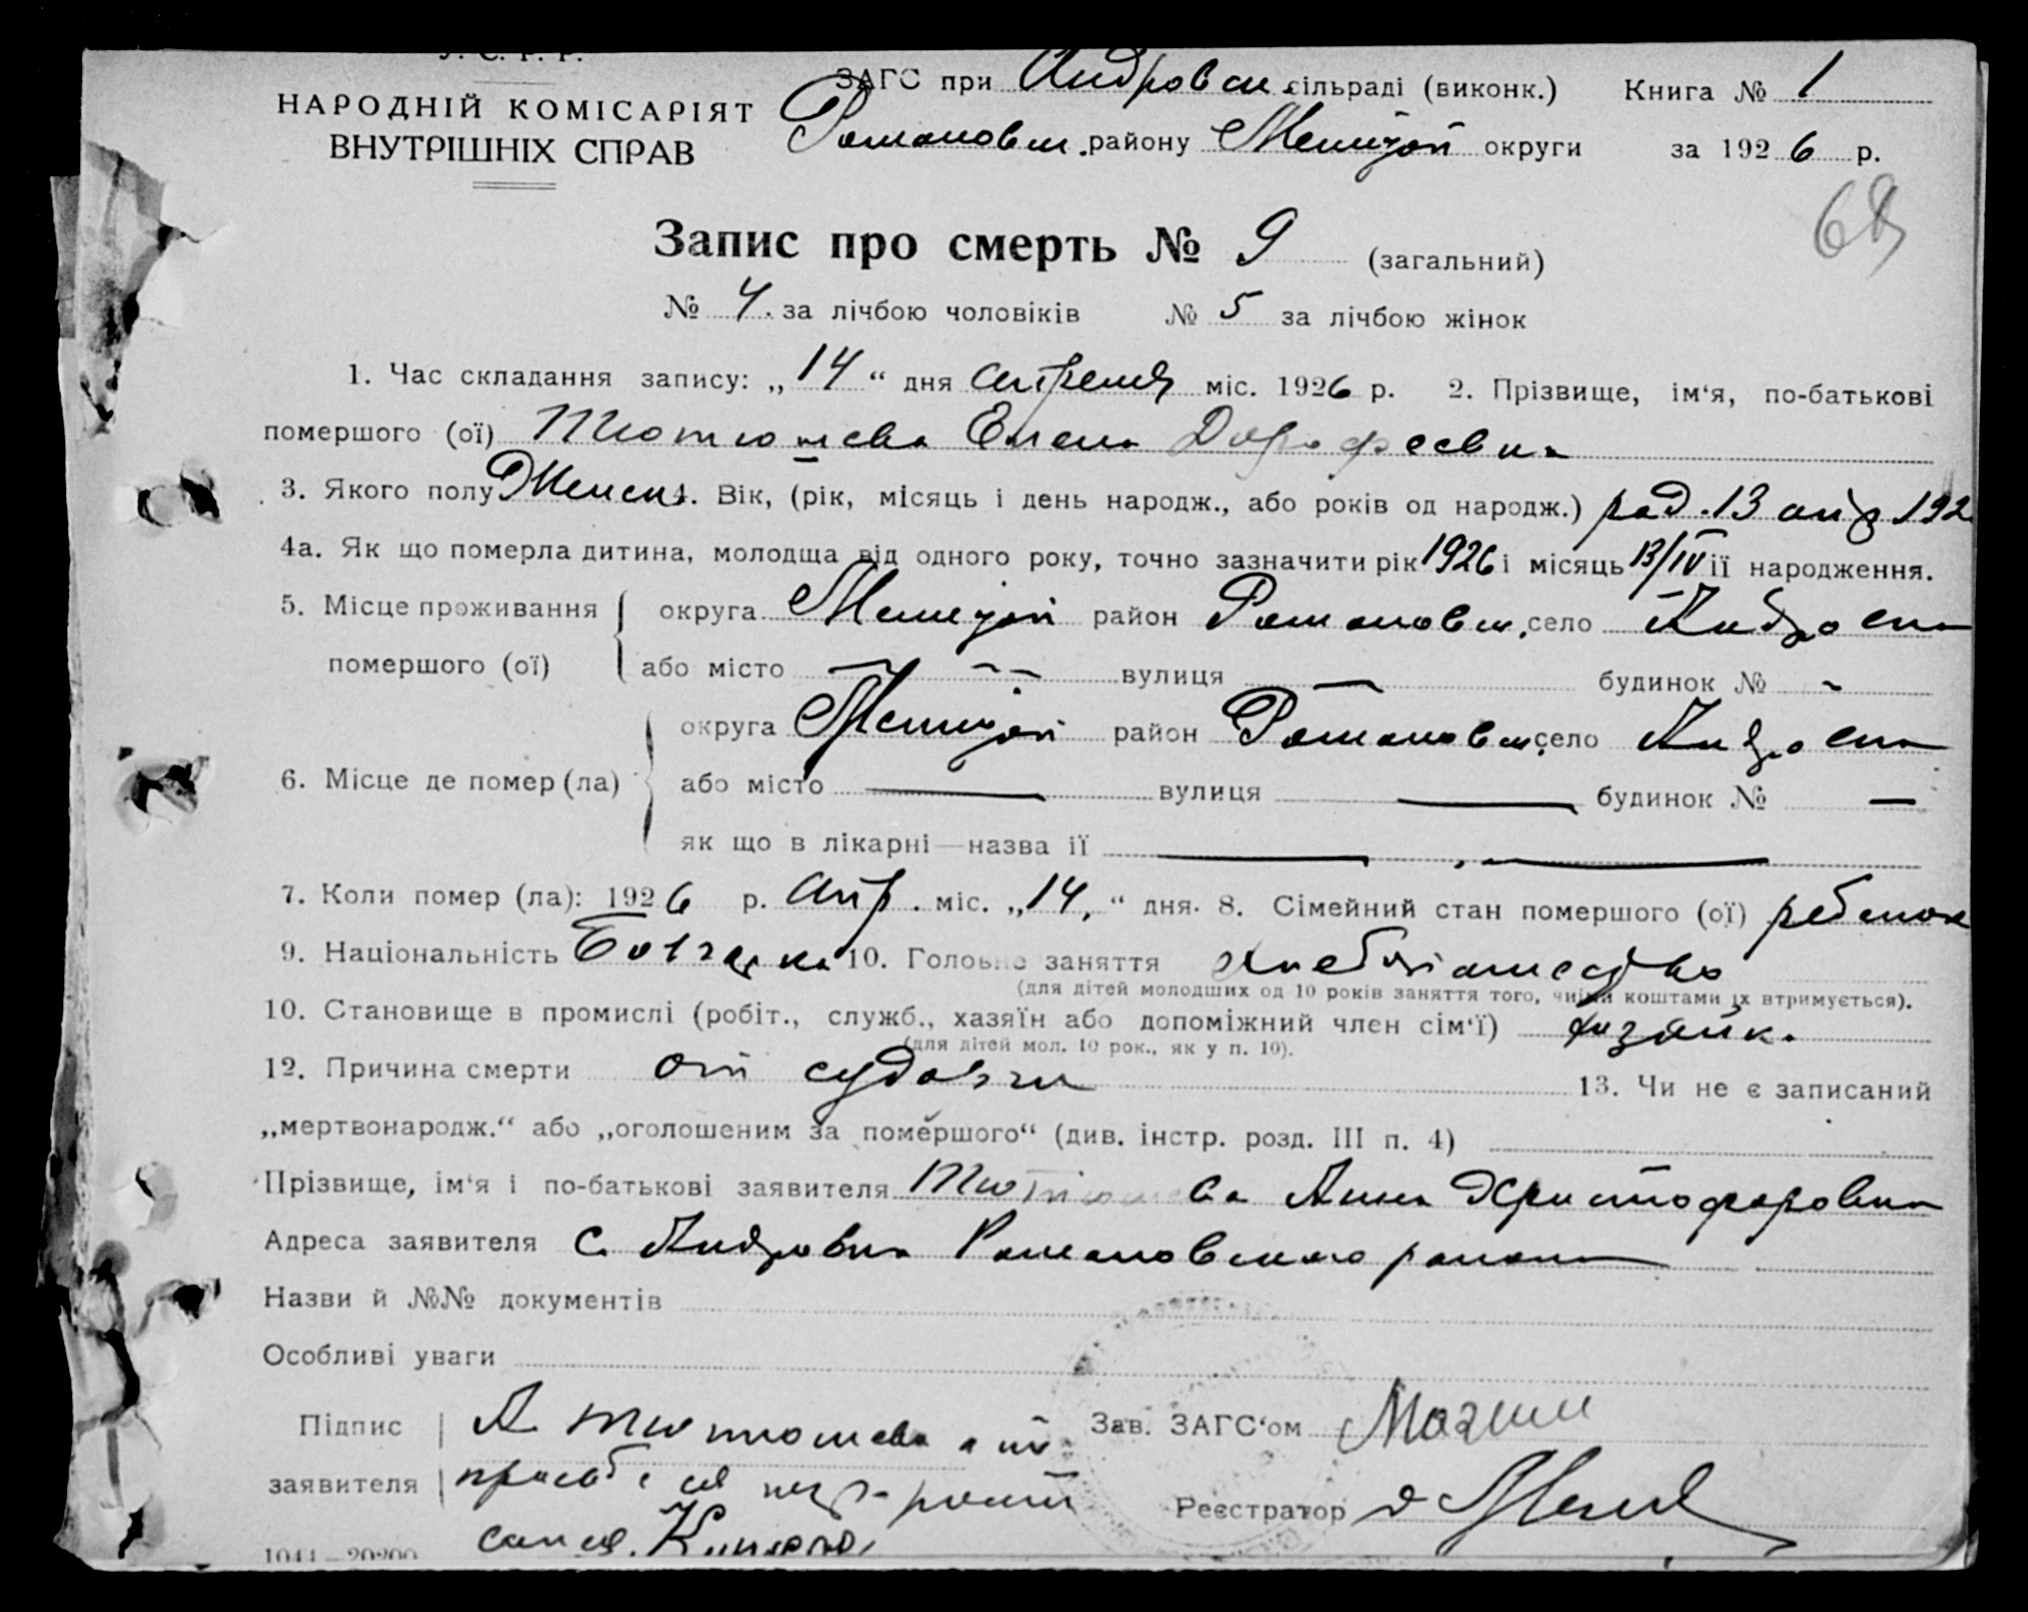 У. С. Р. Р.
НАРОДНІЙ КОМІСАРІЯТ
ВНУТРІШНІХ СПРАВ
ЗАГС при Андровск. сільраді (виконк.) Книга № 1
Романовск. району Мелитоп округи за 1926 р.
68
Запис про смерть № 9 (загальний)
№ 4. за лічбою чоловіків № 5 за лічбою жінок
1. Час складання запису: „14“ дня апреля міс. 1926 р. 2. Прізвище, ім‘я, по-батькові
помершого (ої) Тютюшева Елена Дорофеевна
3. Якого полу Женск 4. Вік, (рік, місяць і день народж., або років од народж.) род. 13 апр 192
4а. Як що померла дитина, молодща від одного року, точно зазначити рік 1926 і місяць 13/IV її народження.
5. Місце проживання округа Мелитоп район Романовск. село Андровка
помершого (ої) або місто — вулиця — будинок № -
округа Мелитоп район Романовск. село Андровка
6. Місце де помер (ла)
або місто — вулиця — будинок № —
як що в лікарні—назва її —
7. Коли помер (ла): 1926 р. Апр. міс. „14.“ дня. 8. Сімейний стан помершого (ої) ребенок
9. Національність Болгарка 10. Головне заняття хлебопашество
(для дітей молодших од 10 років заняття того, чиїми коштами їх втримується).
10. Становище в промислі (робіт., служб., хазяїн або допоміжний член сім‘ї) хозяйк.
(для дітей мол. 10 рок., як у п. 10).
12. Причина смерти от судорги 13. Чи не є записаний
„мертвонародж.“ або „оголошеним за помершого“ (див. інстр. розд. III п. 4)
Прізвище, ім‘я і по-батькові заявителя Тютюшева Анна Христофоровна
Адреса заявителя с. Андровка Романовского района
Назви й №№ документів
Особливі уваги
Підпис А Тютюшева а по Зав. ЗАГС‘ом
заявителя просьбе ея негр-
Реєстратор
1044—20200